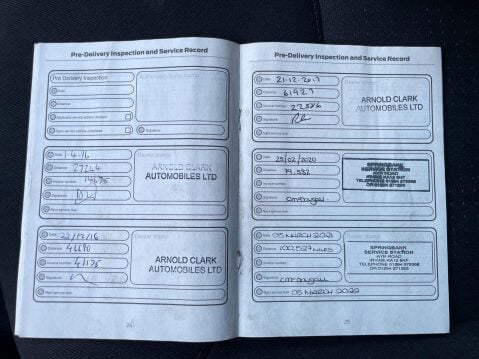 Pre-Delivery Inspection and Service Record
Pre Delivery Inspection
Date:
Distance:
Applicable service actions checked
Open service actions completed
Authorised dealer stamp
Signature:
Date: 1.4.16
Distance: 27244
Invoice number: 14675
Signature:
Next service due:
Dealer stamp
ARNOLD CLARK
AUTOMOBILES LTD
Date: 22/12/16
Distance: 46690
Invoice number: 41175
Signature:
Next service due:
Dealer stamp
ARNOLD CLARK
AUTOMOBILES LTD
24
Pre-Delivery Inspection and Service Record
Date: 21-12-2017
Distance: 61927
Invoice number: 22576
Signature:
Next service due:
Dealer stamp
ARNOLD CLARK
AUTOMOBILES LTD
Date: 25/02/2020
Distance: 79,582
Invoice number:
Signature:
Next service due:
SPRINGBANK
SERVICE STATION
AYR ROAD
Date: 05 MARCH 2021
Distance: 100,527 MILES
Invoice number:
Signature:
Next service due: 05 MARCH 2022
Dealer stamp
SPRINGBANK
SERVICE STATION
AYR ROAD
25